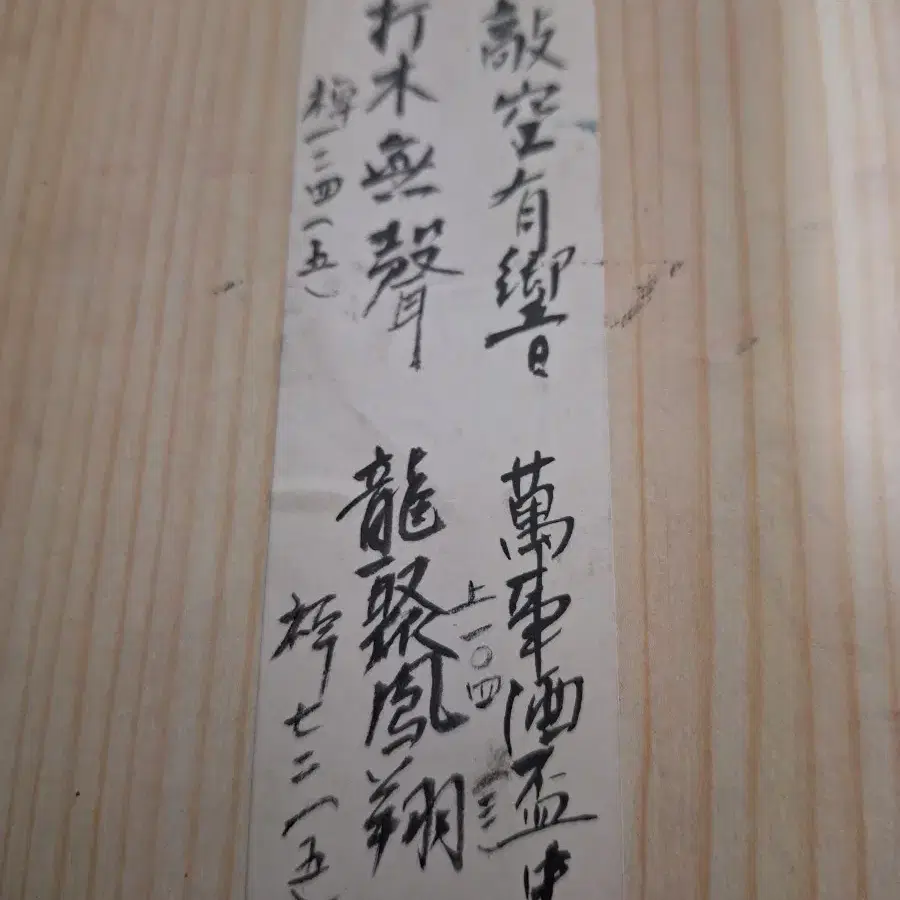 敲空有響
打木無聲
禅一二四(五)
萬事酒盃中
上一〇四(三)
龍聚鳳翔
禅七二(五)